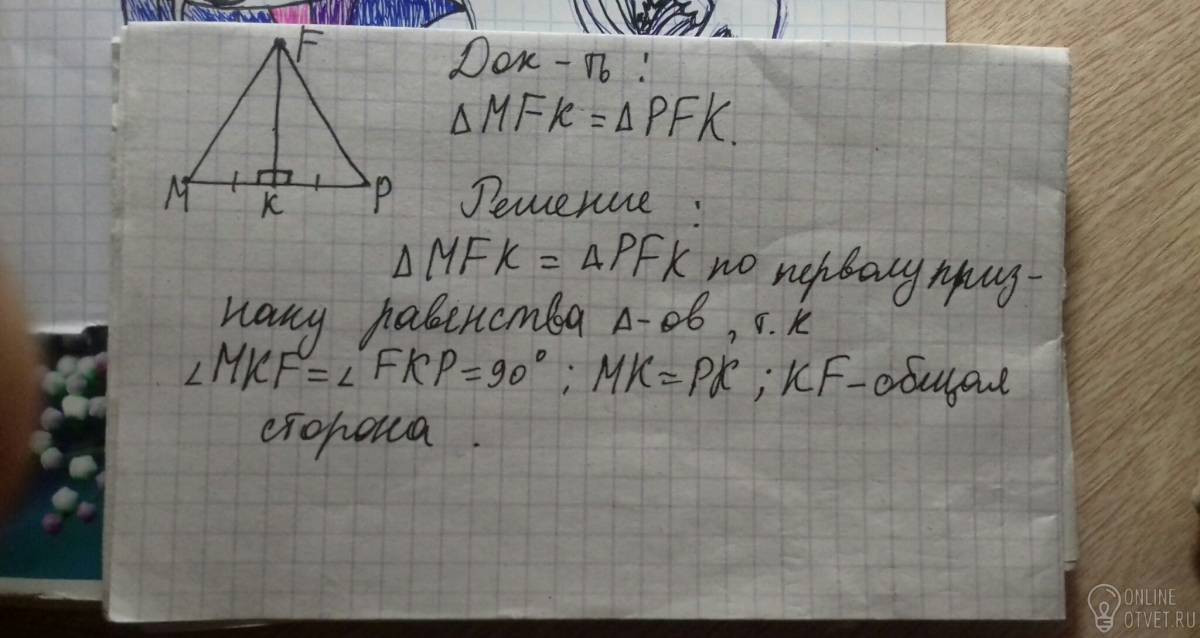 F
M
K
P
Док-ть :
ΔMFK = ΔPFK.
Решение :
ΔMFK = ΔPFK по первому приз-
наку равенства Δ-ов, т.к
∠MKF = ∠FKP = 90° ; MK = PK ; KF – общая
сторона .
ONLINE
OTVET.RU